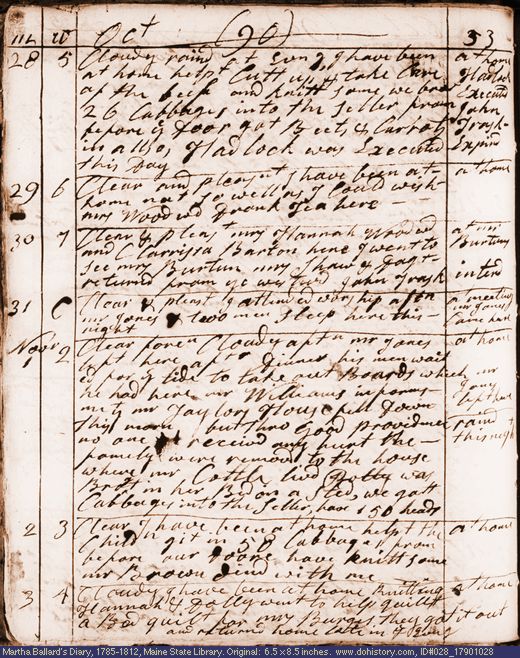 m w Oct (90) 33
28 5 Cloudy raind at Evng I have been at home
at home help Cutt up & take Care Hadlock
of the beef and knitt some we have Executed
26 Cabbages into the Seller from John
before ye Door got Beets & Carrots Trask
in allso Hadlock was Executed Expird
this Day
29 6 Clear and pleasnt I have been at at home
home not so well as I Could wish
mrs Woodwd Drank Tea here
30 7 Clear & pleast mrs Hannah Woodwd at mr
and Clarrissa Barton here I went to Burtuns
see mrs Burtun mrs Shaw & Dagt
returnd from ye westwd John Trask interd
31 C Clear & pleast I attended worship aftn at meeting
mr Jones & two men sleep here this mr Jones
night Came here
Novr
1 2 Clear foren Cloudy aptn mr Jones at home
left here aftr Dinner his men wait
ed for ye tide to take out Boards which mr
he had here mr Williams informs Jones
me yt mr Taylors House fell Down left here
this morn but thro Good providence raind
no one receivd any hurt the this night
family were removd to the house
where mr Cottle livd Polly was
Brot in her Bed on a Sled, we gott
Cabbages into the Seller, have 150 heads
2 3 Clear I have been at home helpt the at home
Child git in 58 Cabbages from
before our Doore have knitt some
mr Brown dind with me
3 4 Cloudy I have been at home knitting at home
Hannah & Dolly went to help quilt
a Bed quilt for mrs Burges they got it out
and returnd home late in ye Evng
Martha Ballard's Diary, 1785-1812, Maine State Library. Original: 6.5 x 8.5 inches. www.dohistory.com, ID#I028_17901028